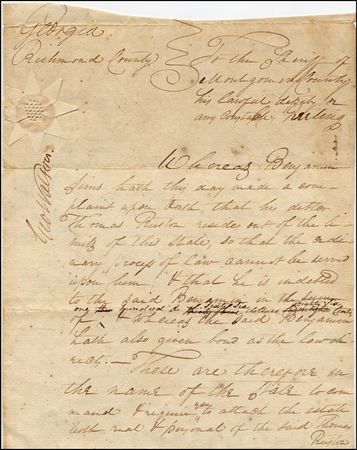 Georgia
Richmond County
To the Sheriff of
Montgomery County
his lawful deputy or
any Constable, Greeting
Geo Walker
Whereas Benjamin
Sims hath this day made a com
plaint upon Oath that his debtor
Thomas Ruston resides out of the li
mits of this State, so that the ordi
nary process of law cannot be served
upon him, & that he is indebted
to the said Benjamin in the
one hundred & dollars
of & Whereas the said Benjamin
hath also given bond as the law di
rects.—
These are therefore in
the name of the State to com
mand & require you to attach the estate
both real & personal of the said Thomas
Ruston